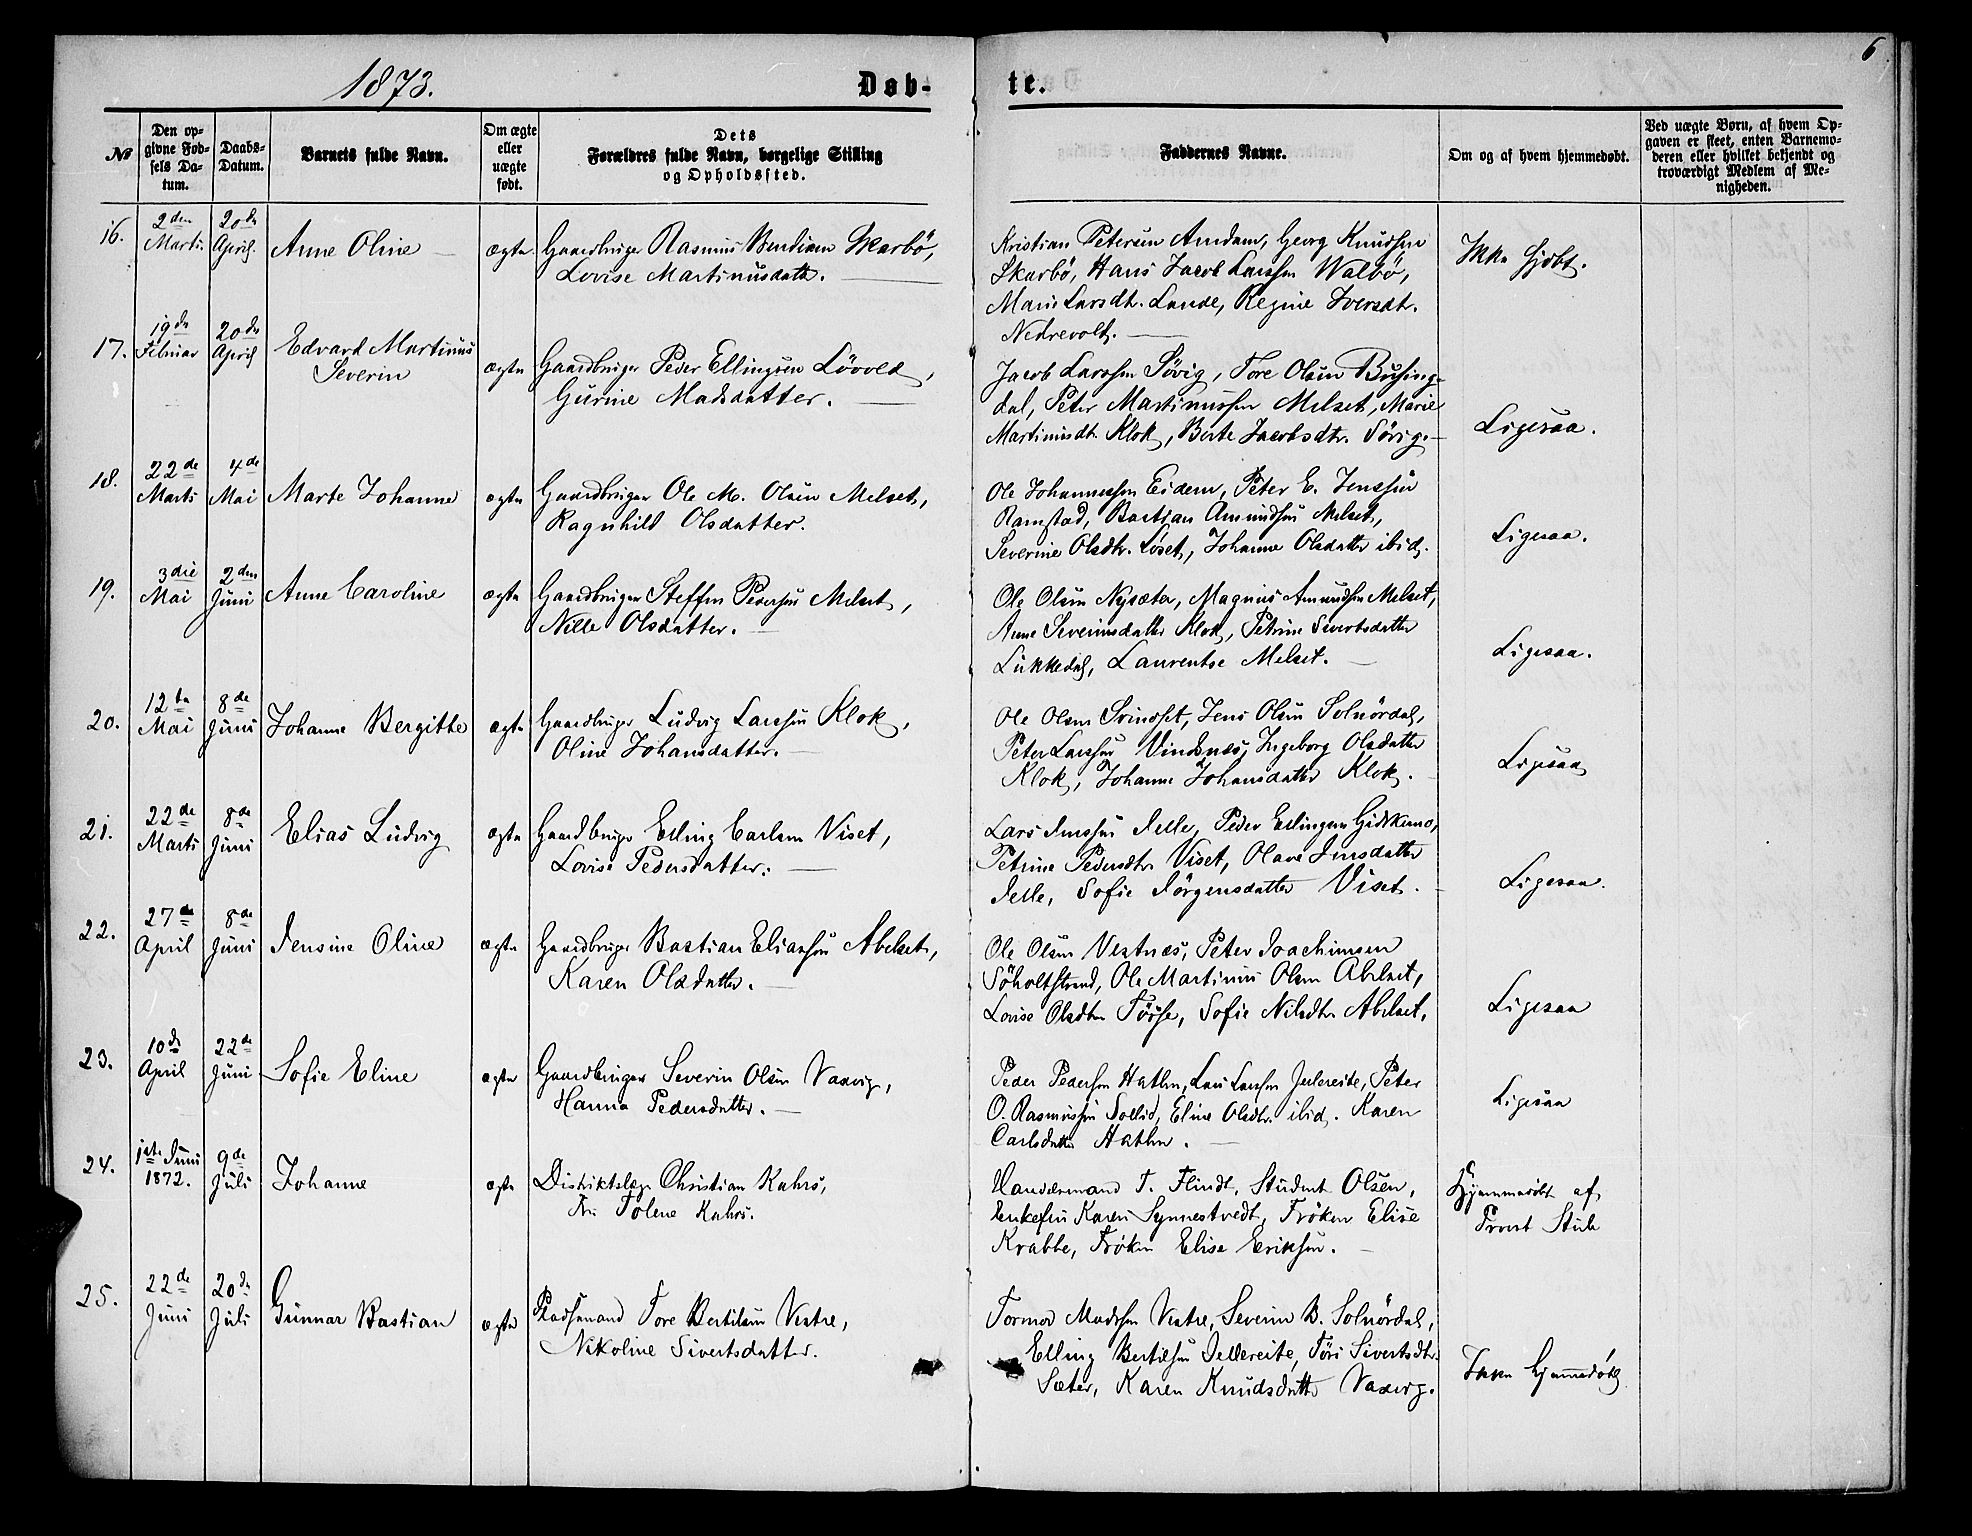 6
1873.
Døb-
te.
№
Den op-
givne Fød-
sels Da-
tum.
Daabs-
Datum.
Barnets fulde Navn.
Om ægte
eller
uægte
født.
Dets
Forældres fulde Navn, borgelige Stilling
og Opholdssted.
Faddernes Navne.
Om og af hvem hjemmedøbt.
Ved uægte Børn, af hvem Op-
gaven er skeet, enten Barnemo-
deren eller hvilket bekjendt og
troværdigt Medlem af Me-
nigheden.
16.
2den
Marts
20de
April
Anne Oline
ægte
Gaardbruger Rasmus Bendixen Skarbö,
Lovise Martinusdatt.
Kristian Petersen Amdam, Georg Knudsen
Skarbö, Hans Jacob Larssen Walbö,
Marie Larsdtr. Lande, Regine Iversdt.
Nedrevolt.
Ikke Hjdbt.
17.
19de
Februar
20de
April
Edvard Martinus
Severin
ægte
Gaardbruger Peder Ellingsen Löovld,
Gurine Madsdatter.
Jacob Larssen Sövig, Tore Olsen Businge-
dal, Peter Martinussen Melset, Marie
Martinusdt. Klok, Berte Jacobsdtr. Sövig.
Ligesaa.
18.
22de
Marts
4de
Mai
Marte Johanne
ægte
Gaardbruger Ole M. Olsen Melset,
Ragnhild Olsdatter.
Ole Johannessen Eidem, Peter E. Jenssen
Ramstad, Bastian Amundsen Melset,
Severine Olsdtr. Löset, Johanne Olsdatter ibid.
Ligesaa.
19.
3die
Mai
2den
Juni
Anne Caroline
ægte
Gaardbruger Steffen Pedersen Melset,
Nille Olsdatter.
Ole Olsen Nysæter, Magnus Amundsen Melset,
Anne Severinsdatter Klok, Petrine Sivertsdatter
Lukkedal, Laurentse Melset.
Ligesaa.
20.
12te
Mai
8de
Juni
Johanne Bergitte
ægte
Gaardbruger Ludvig Larssen Klok,
Oline Johansdatter.
Ole Olsen Svindset, Jens Olsen Solnördal,
Peter Larssen Vindsnes, Ingeborg Olsdatter
Klok, Johanne Johansdatter Klok.
Ligesaa
21.
22de
Marts
8de
Juni
Elias Ludvig
ægte
Gaardbruger Elling Carlsen Viset,
Lovise Pedersdatter.
Lars Jenssen Jelle, Peder Ellingsen Gidskemo,
Petrine Pedersdtr Viset, Olave Jensdatter
Jelle, Sofie Jörgensdatter Viset.
Ligesaa.
22.
27de
April
8de
Juni
Jensine Oline
ægte
Gaardbruger Bastian Eliassen Abelset,
Karen Olsdatter.
Ole Olsen Vestnes, Peter Joachimsen
Söholtstrand, Ole Martinus Olsen Abelset,
Lovise Olsdtr Tösse, Sofie Nilsdtr Abelset,
Ligesaa
23.
10de
April
22de
Juni
Sofie Eline
ægte
Gaardbruger Severin Olsen Vaxvig,
Hanna Pedersdatter.
Peder Pedersen Hatlen, Lars Larssen Jelereite, Peter
O. Rasmussen Sollid, Eline Olsdtr. ibid. Karen
Carlsdatter Hatlen.
Ligesaa
24.
1ste Juni
1872.
9de
Juli
Johanne
ægte
Distriktslæge Christian Kahrs,
Fru Tolene Kahrs.
Handelsmand T. Flindt, Student Olsen,
Enkefru Karen Synnestvedt, Fröken Elise
Krabbe, Fröken Elise Eriksen.
Hjemmedöbt af
Provst Stub
25.
22de
Juni
20de
Juli
Gunnar Bastian
ægte
Pladsemand Tore Bertilsen Vestre,
Nikoline Sivertsdatter.
Tormod Madssen Vestre, Severin B. Solnördal,
Elling Bertilsen Jellereite, Töri Sivertsdtr.
Sæter, Karen Knudsdatter Vaxvig.
Ikke hjemmedöbt